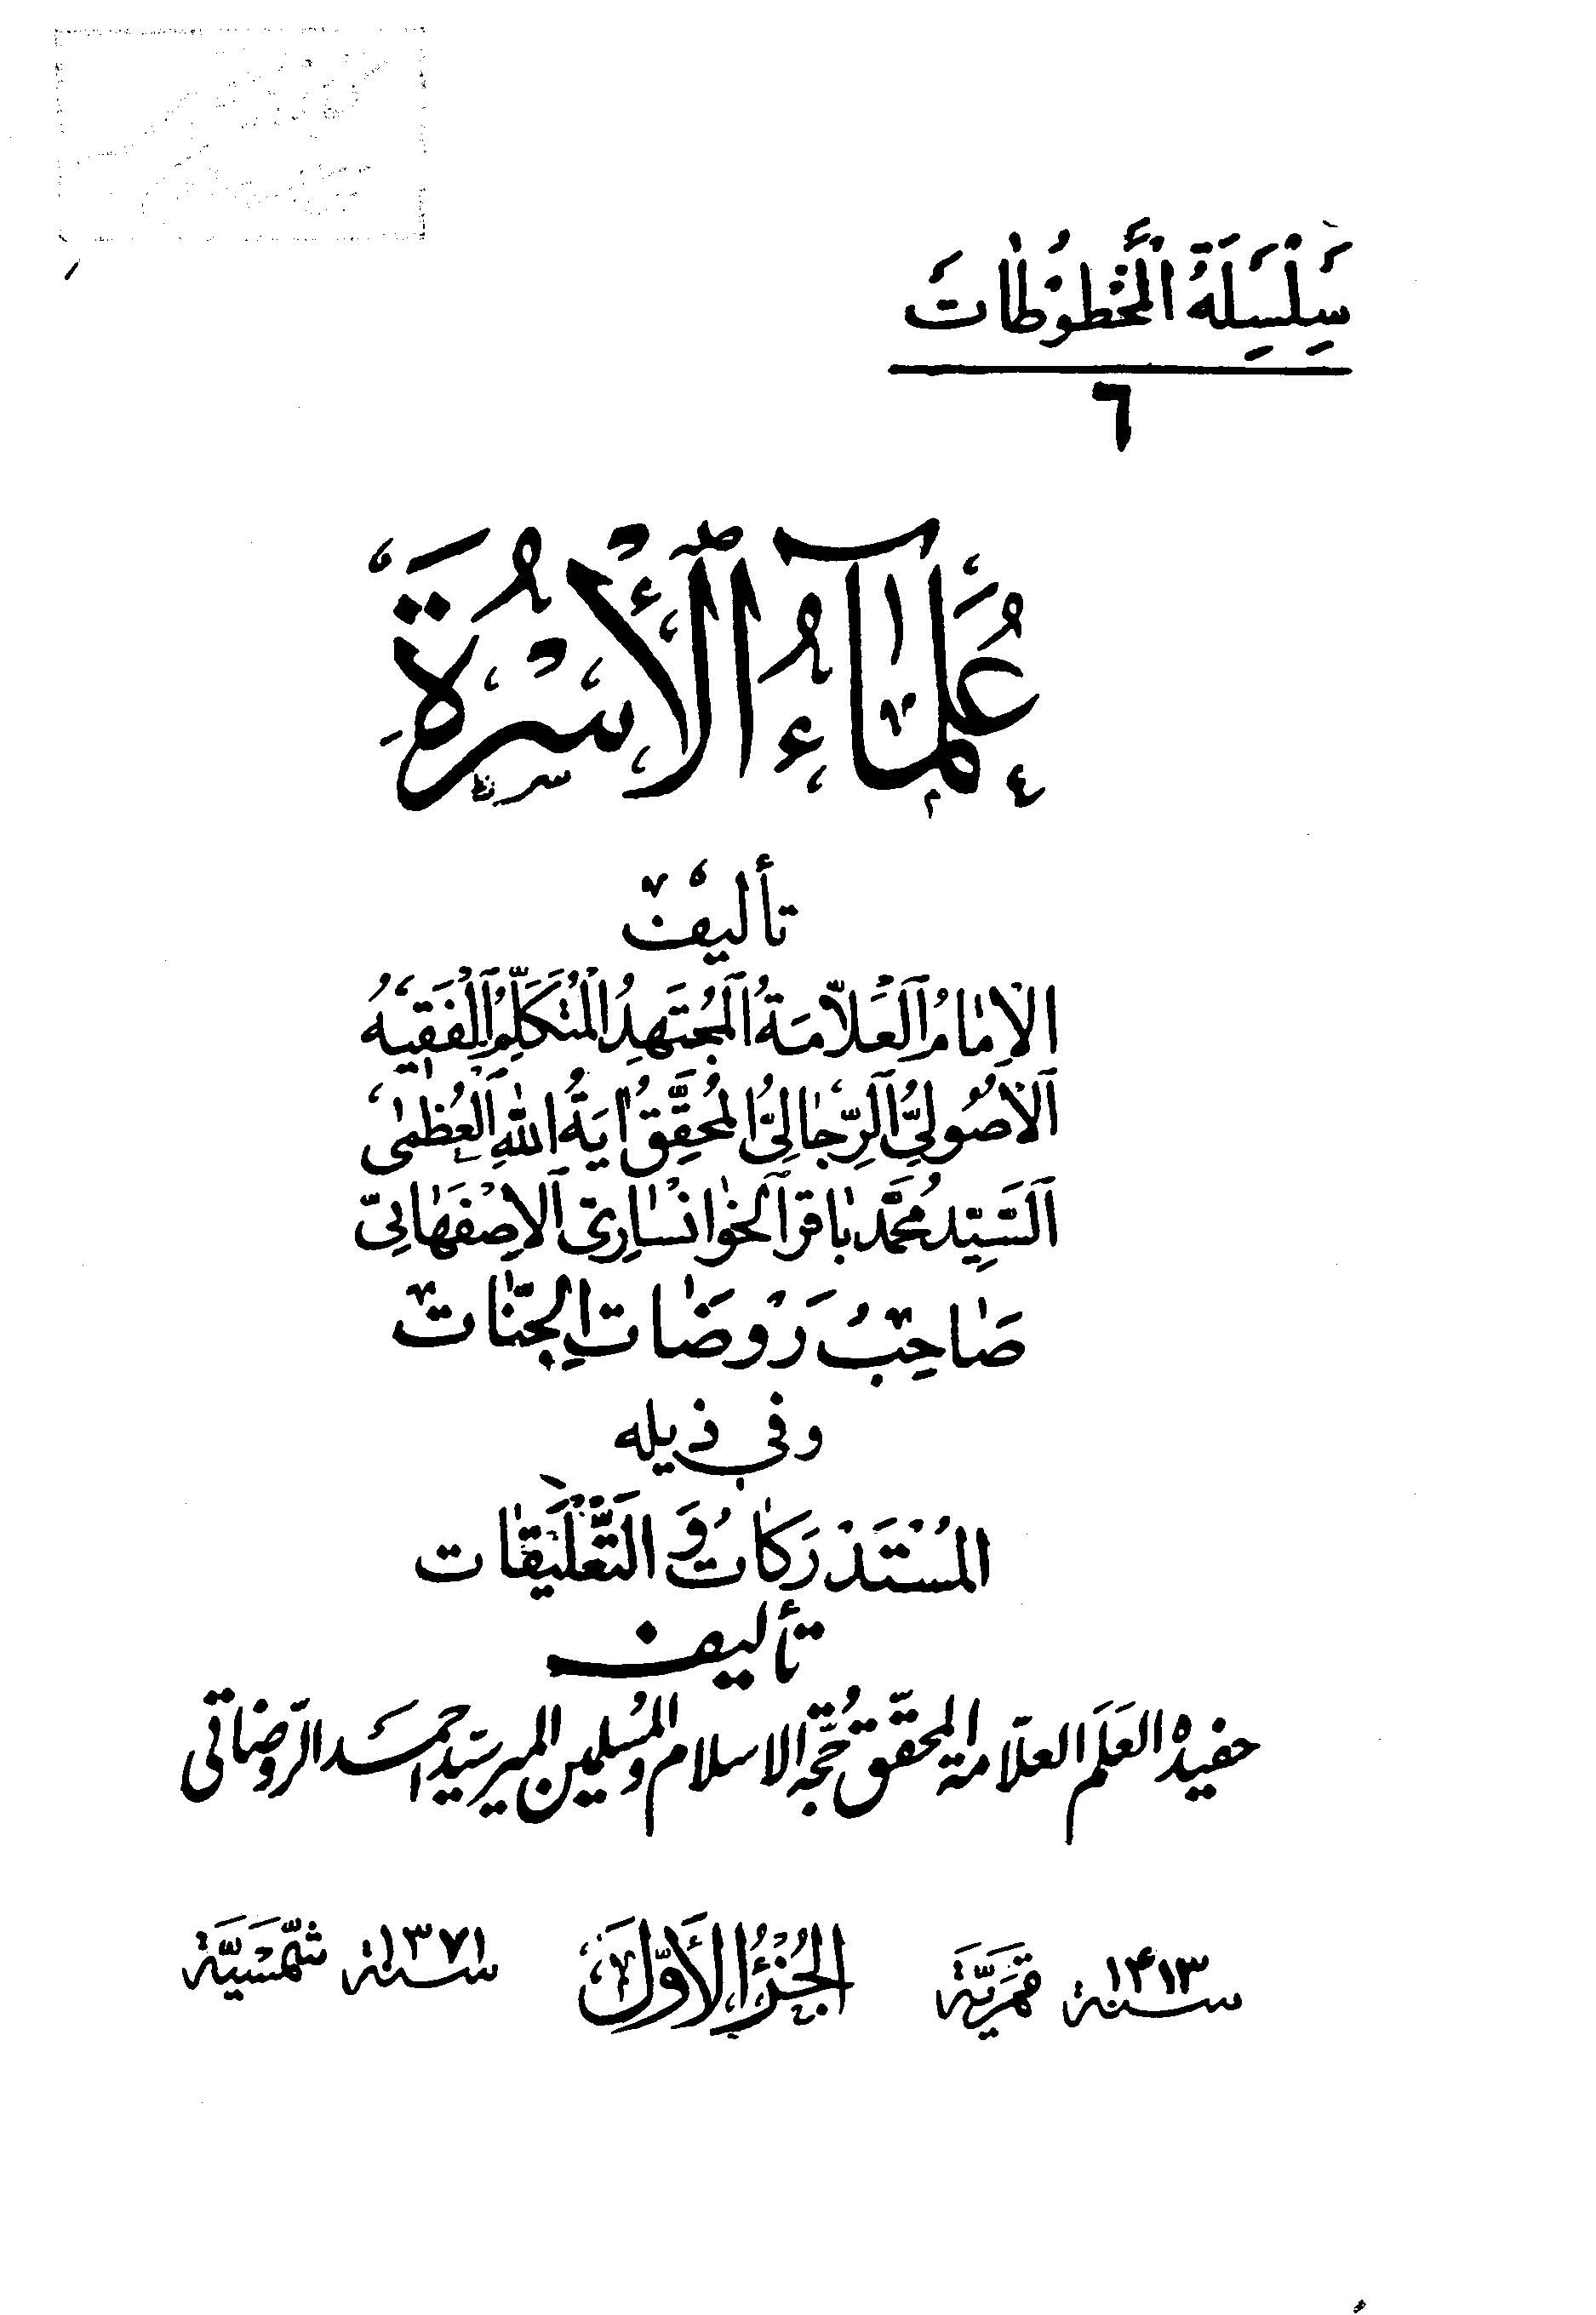 سِلْسِلَةُ الْمَخْطُوطَات
٦
عُلَمَاءُ الْأُسْرَةِ
تأليف
الإمَامُ الْعَلّامَةُ الْمُجتَهِدُ الْمُتَكَلِّمُ الْفَقِيهُ
الأصُولِيُّ الرِّجَالِيُّ الْمُحَقِّقُ آيَةُ اللهِ الْعُظْمى
السَّيِّدُ مُحَمَّد بَاقر الْخوانسَارِيّ الإصْفَهَانِيّ
صَاحِبُ رَوْضَاتِ الجَنَّات
وفي ذيله
المُسْتَدْرَكَاتُ وَ التَّعْلِيقَات
تأليف
حفيده العَلَم العلّامة المحقّق حُجَّة الاسلام والمُسلمين المير سيّد احمَد الرّوضاتي
سنة ١٤١٣ قَمَرِيَّة الجُزْءُ الأَوَّل سنة ١٣٧١ شَمْسِيَّة